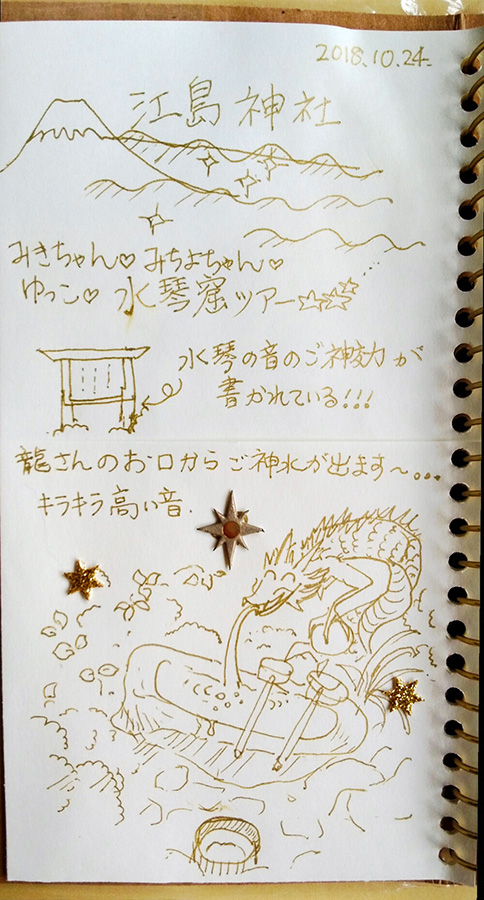 2018.10.24.
江島神社
みきちゃん♡ みちよちゃん♡
ゆっこ♡ 水琴窟ツアー☆☆☆
水琴の音のご神効力が
書かれている!!!
龍さんのお口からご神水が出ます〜...
キラキラ高い音.